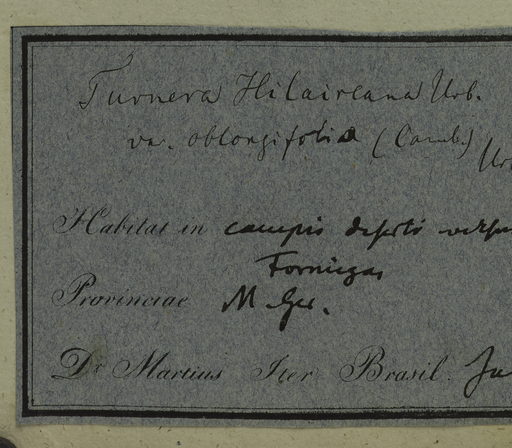 Turnera Hilaireana Urb.
va. oblongifolia (Camb.)
Ur
Habitat in campis deserti versu
Formigas
Provinciae M Ger.
Dr Martius Iter Brasil. Ju